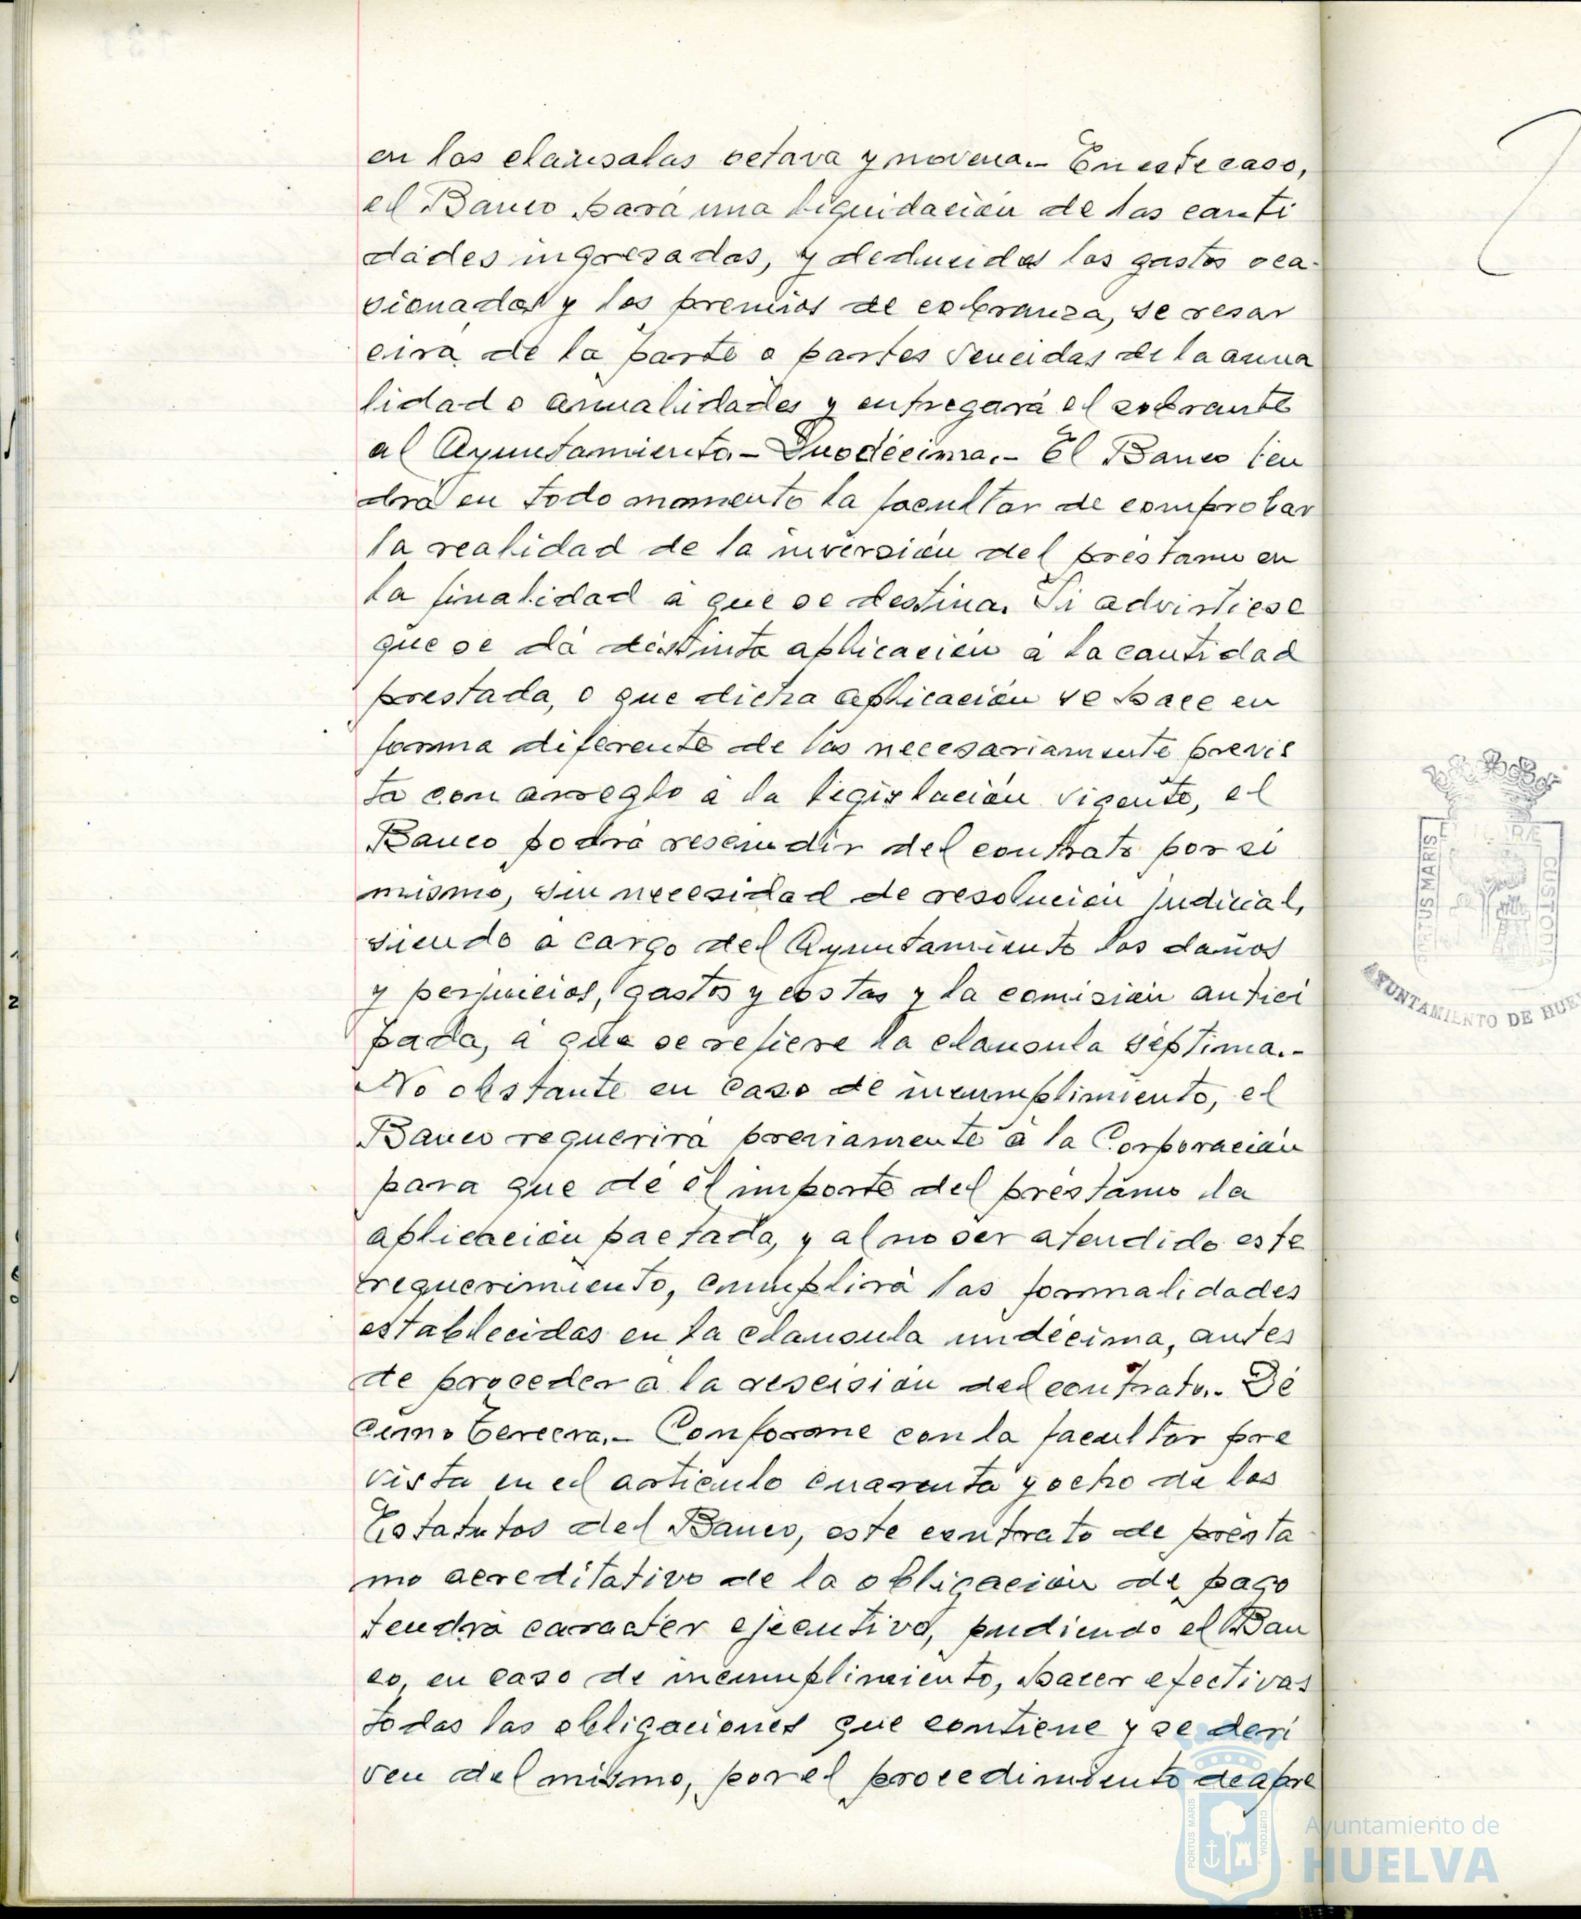 en las claúsulas octava y novena.- En este caso,
el Banco hará una liquidación de las canti
dades ingresadas, y deducidos los gastos oca-
sionados y los premios de cobranza, se resar
cirá de la parte o partes vencidas de la anua
lidad o anualidades y entregará el sobrante
al Ayuntamiento.- Duodécima.- El Banco ten
drá en todo momento la facultar de comprobar
la realidad de la inversión del préstamo en
la finalidad á que se destina. Si advirtiese
que se dá distinta aplicación á la cantidad
prestada, o que dicha aplicación se hace en
forma diferente de las necesariamente previs
ta con arreglo á la legislación vigente, el
Banco podrá rescindir del contrato por sí
mismo, sin necesidad de resolución judicial,
siendo á cargo del Ayuntamiento los daños
y perjuicios, gastos y costas y la comisión antici
pada, á que se refiere la clausula séptima.-
No obstante en caso de incumplimiento, el
Banco requerirá previamente á la Corporación
para que dé el importe del préstamo la
aplicación pactada, y al no ser atendido este
requerimiento, cumplirá las formalidades
establecidas en la clausula undécima, antes
de proceder á la rescisión del contrato.- Dé
cimo tercera.- Conforme con la facultar pre
vista en el artículo cuarenta y ocho de los
Estatutos del Banco, este contrato de présta
mo acreditativo de la obligación de pago
tendrá caracter ejecutivo, pudiendo el Ban
co, en caso de incumplimiento, hacer efectivas
todas las obligaciones que contiene y se deri
ven del mismo, por el procedimiento de apre
PORTUS MARIS
CUSTODI
AYUNTAMIENTO DE HUE
PORTUS MARIS
CUSTODIA
Ayuntamiento de
HUELVA